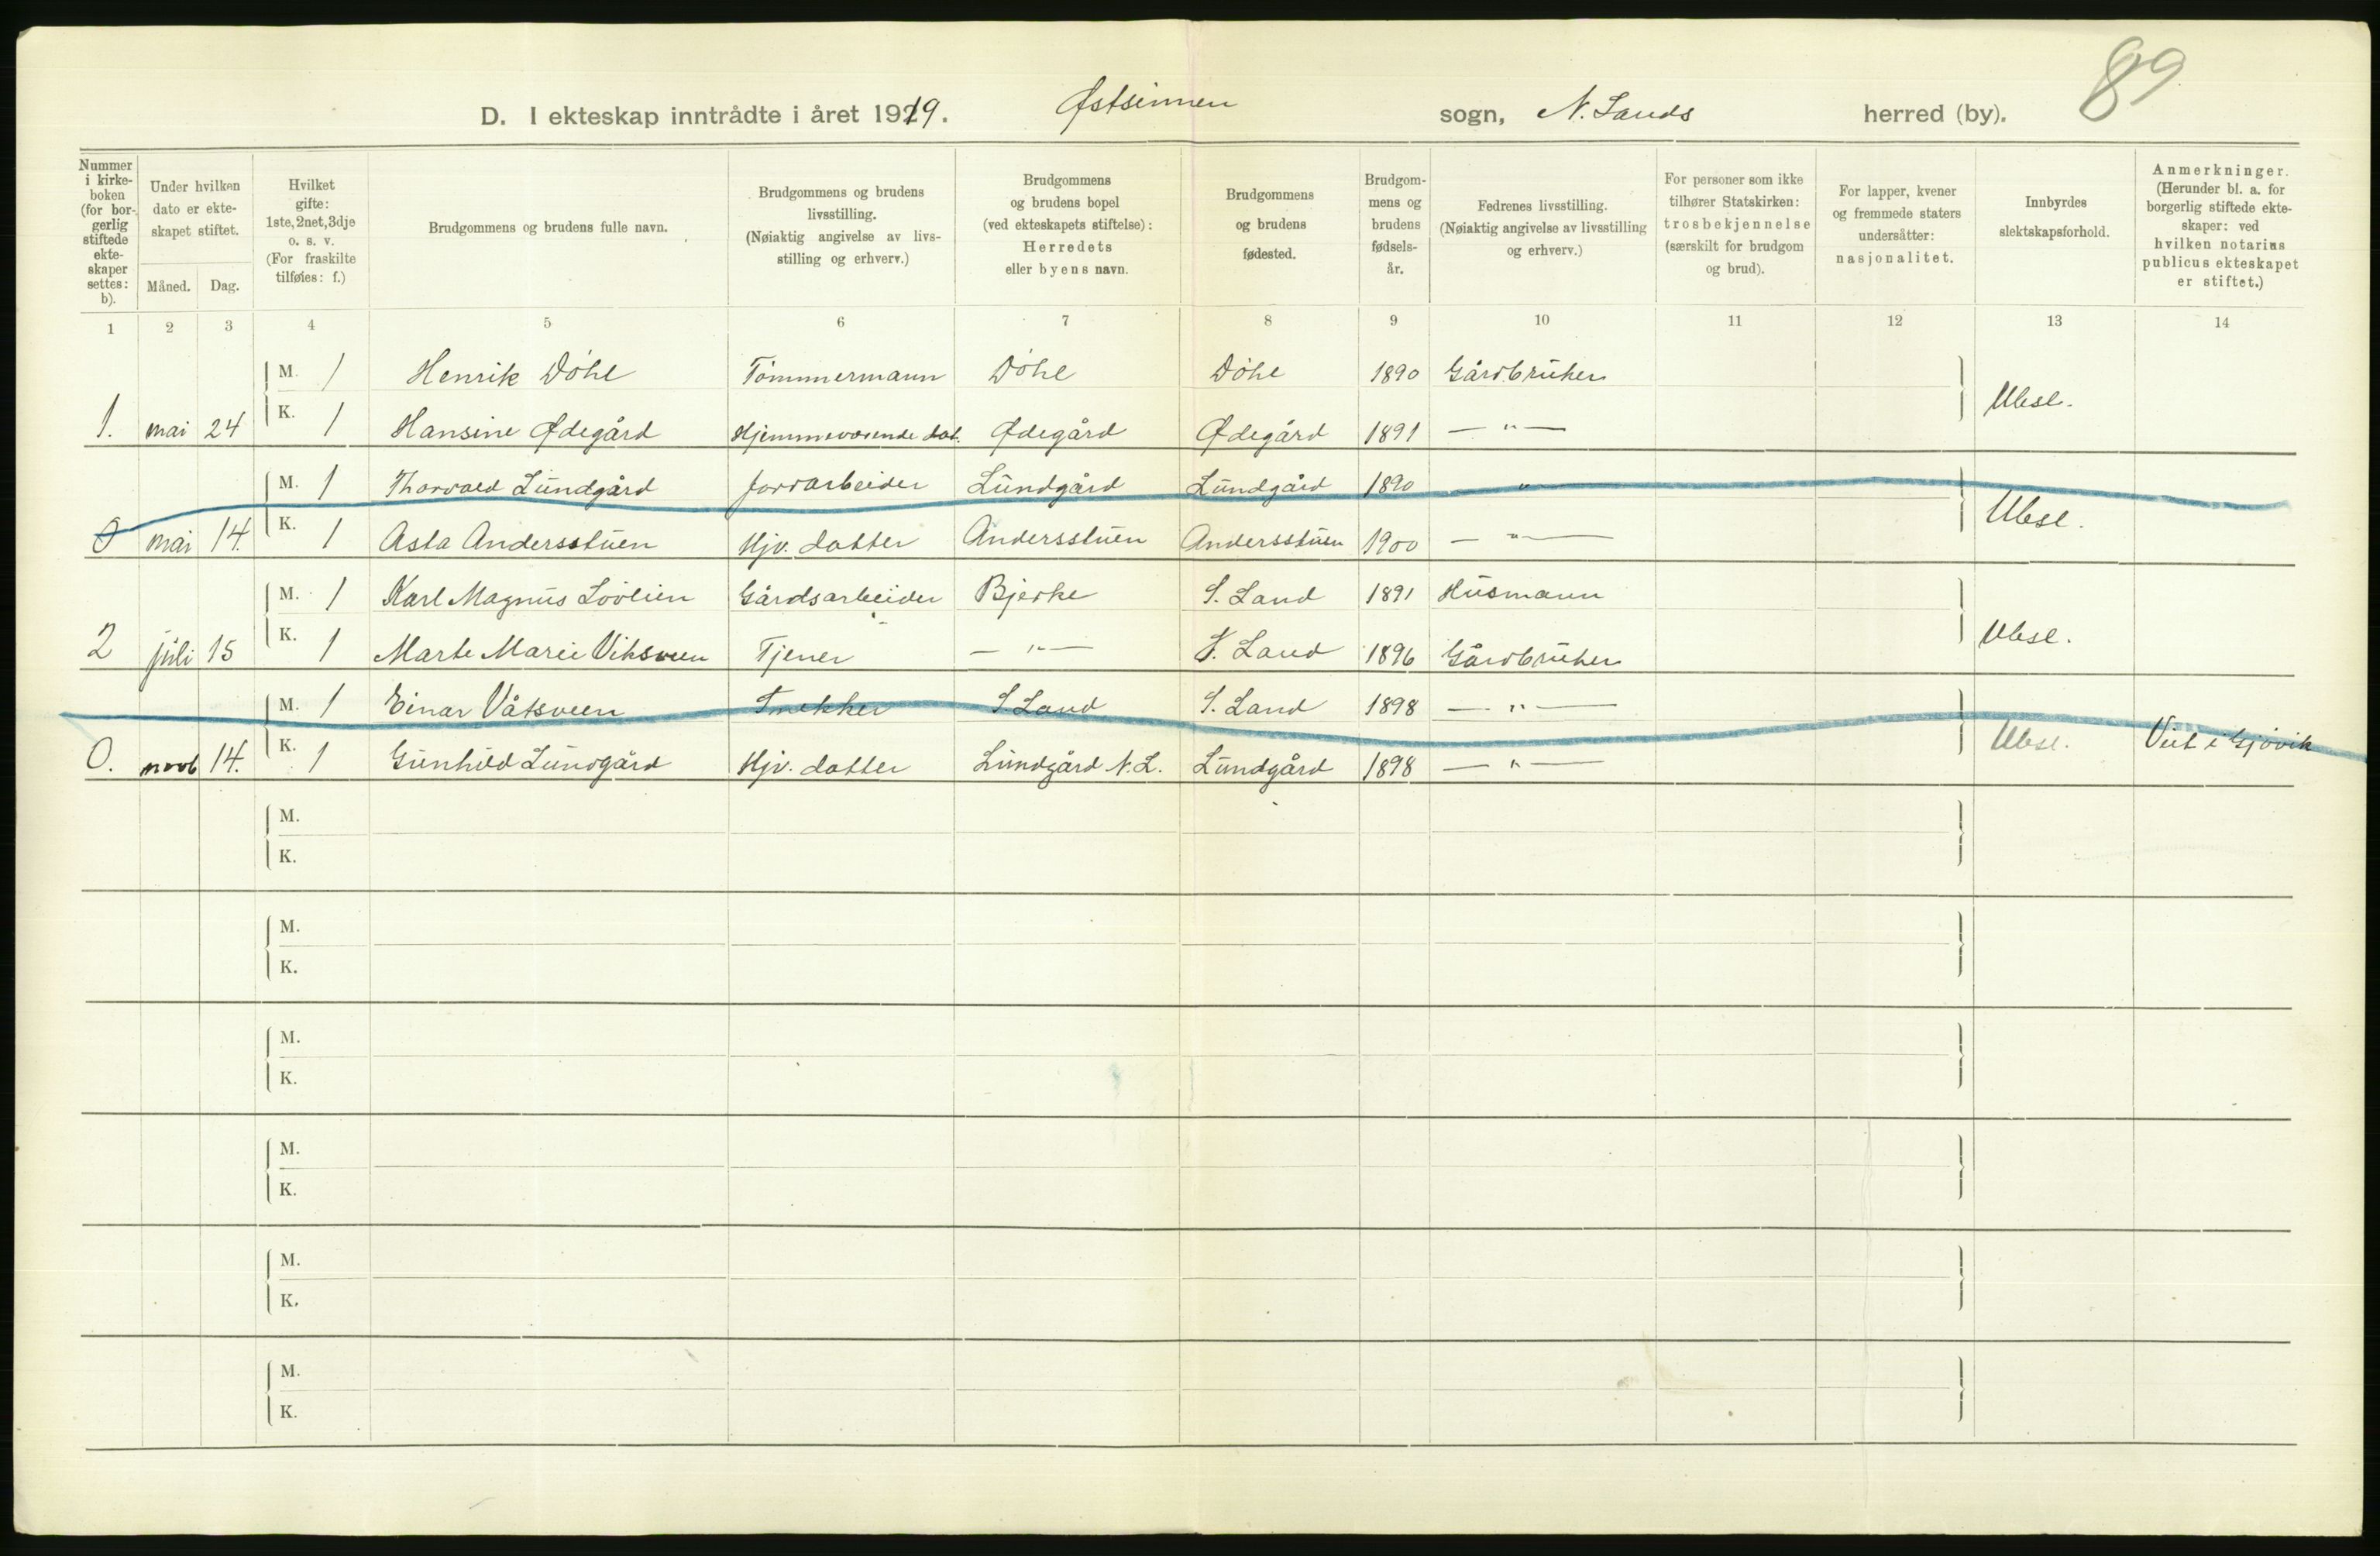 89
D. I ekteskap inntrådte i året 1919. Østsinnen sogn, N. Lands herred (by).
Nummer i kirkeboken (for borgerlig stiftede ekteskaper settes: b).
Under hvilken dato er ekteskapet stiftet.
Måned. Dag.
Hvilket gifte: 1ste, 2net, 3dje o. s. v. (For fraskilte tilføies: f.)
Brudgommens og brudens fulle navn.
Brudgommens og brudens livsstilling. (Nøiaktig angivelse av livsstilling og erhverv.)
Brudgommens og brudens bopel (ved ekteskapets stiftelse): Herredets eller byens navn.
Brudgommens og brudens fødested.
Brudgommens og brudens fødselsår.
Fedrenes livsstilling. (Nøiaktig angivelse av livsstilling og erhverv.)
For personer som ikke tilhører Statskirken: trosbekjennelse (særskilt for brudgom og brud).
For lapper, kvener og fremmede staters undersåtter: nasjonalitet.
Innbyrdes slektskapsforhold.
Anmerkninger. (Herunder bl. a. for borgerlig stiftede ekteskaper: ved hvilken notarius publicus ekteskapet er stiftet.)
1 2 3 4 5 6 7 8 9 10 11 12 13 14
M. 1 Henrik Döhl Tömmermann Döhl Döhl 1890 Gårdbruker
1. mai 24 K. 1 Hansine Ødegård Hjemmeværende dat. Ødegård Ødegård 1891 — " — Ubesl.
M. 1 Thorvald Lundgård Jordarbeider Lundgård Lundgård 1890 — " —
0 mai 14. K. 1 Asta Andersstuen Hjv. datter Andersstuen Andersstuen 1900 — " — Ubesl.
M. 1 Karl Magnus Lövlien Gårdsarbeider Bjerke S. Land 1891 Husmann
2 juli 15 K. 1 Marte Marie Viksveen Tjener — " — S. Land 1896 Gårdbruker Ubesl.
M. 1 Einar Våtsveen S. Land S. Land 1898 — " —
0. novb 14. K. 1 Gunhild Lundgård Hjv. datter Lundgård N.L. Lundgård 1898 — " — Ubesl. Viet i Gjövik
M.
K.
M.
K.
M.
K.
M.
K.
M.
K.
M.
K.